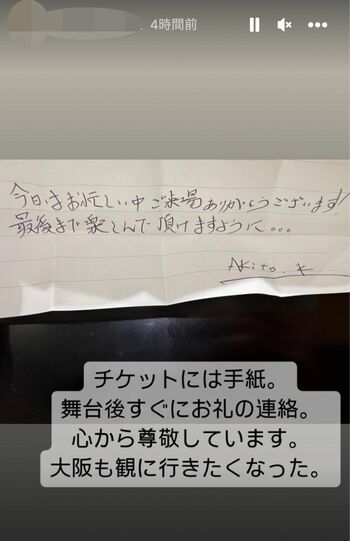 4時間前
今日はお忙しい中ご来場ありがとうございます!
最後まで楽しんで頂けますように...
Akito.K
チケットには手紙。
舞台後すぐにお礼の連絡。
心から尊敬しています。
大阪も観に行きたくなった。